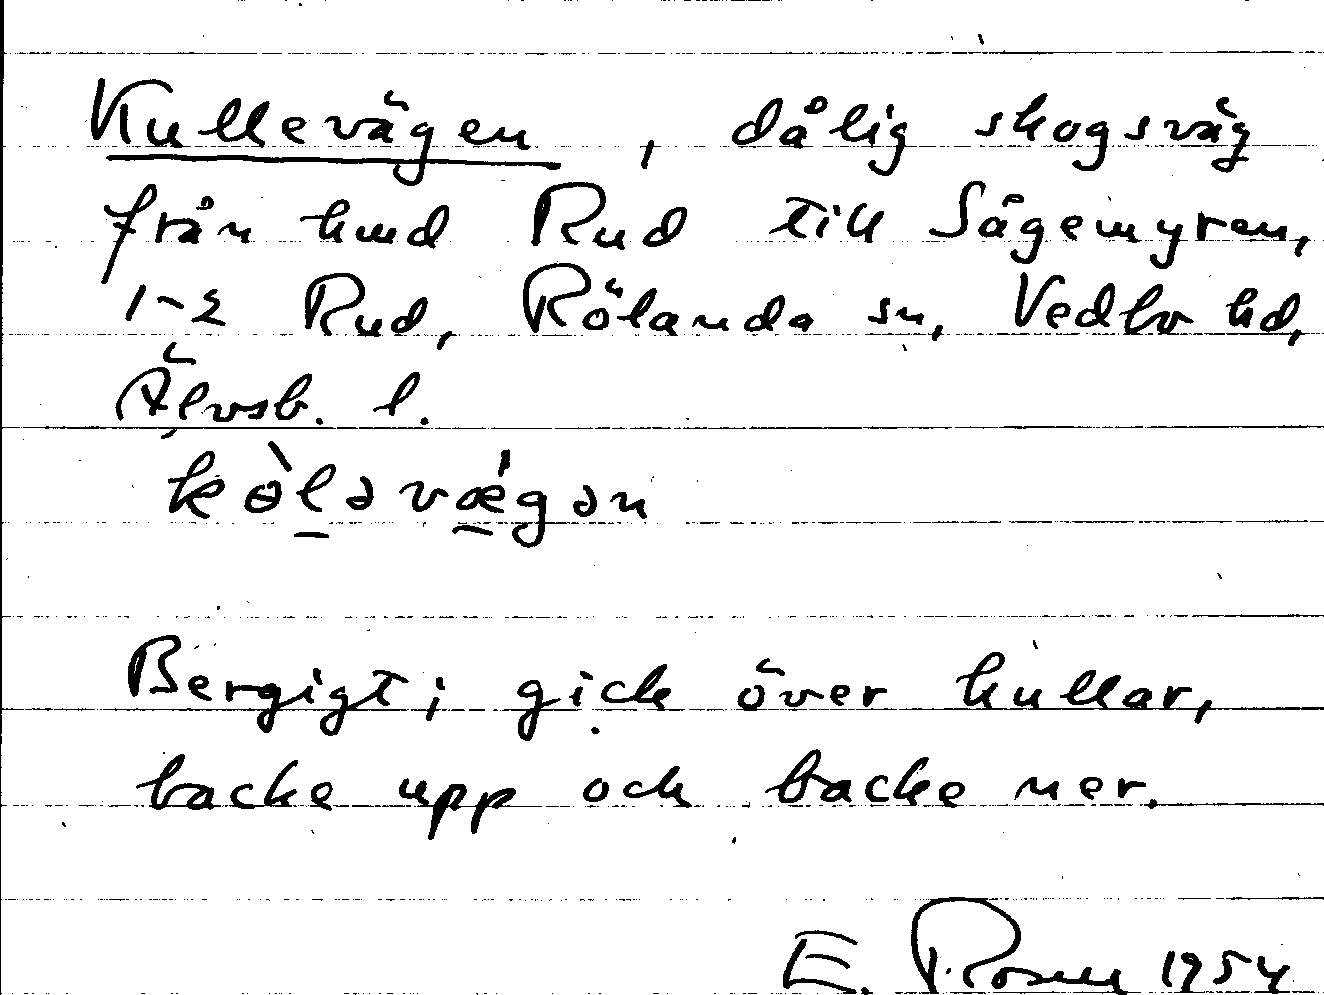 Kullevägen, dålig skogsväg
från hmd Rud till Sågemyren,
1-2 Rud, Rölanda sn, Vedbo hd,
Älvsb. l.
kɵ̀l̠əvǽ̠gən
Bergigt; gick över kullar,
backe upp och backe ner.
E. Rosell 1954